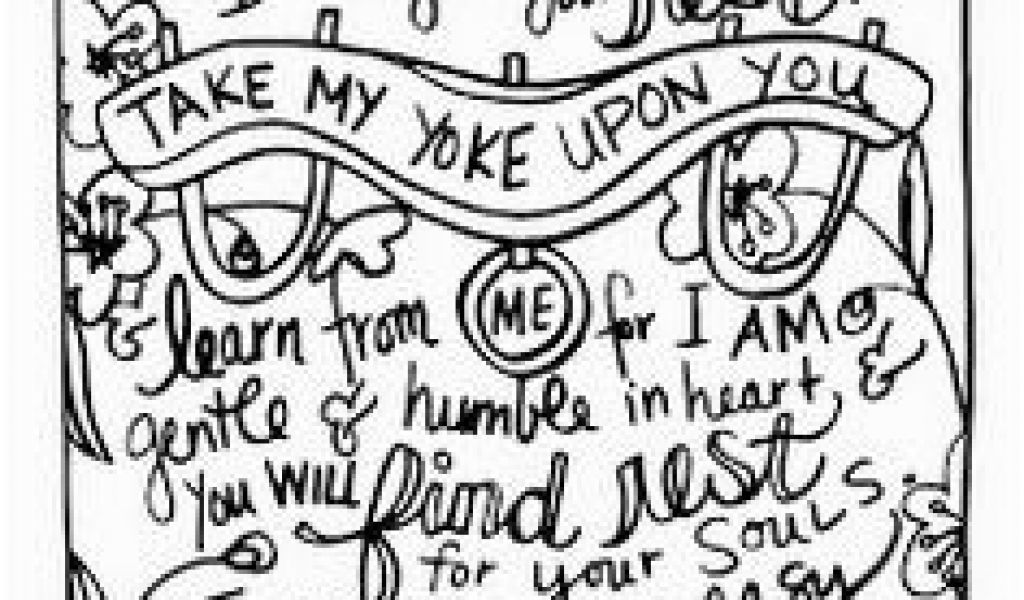 you rest.
TAKE MY YOKE UPON YOU
& learn from ME for I AM
gentle & humble in heart, &
you will find rest
for your souls.
easy